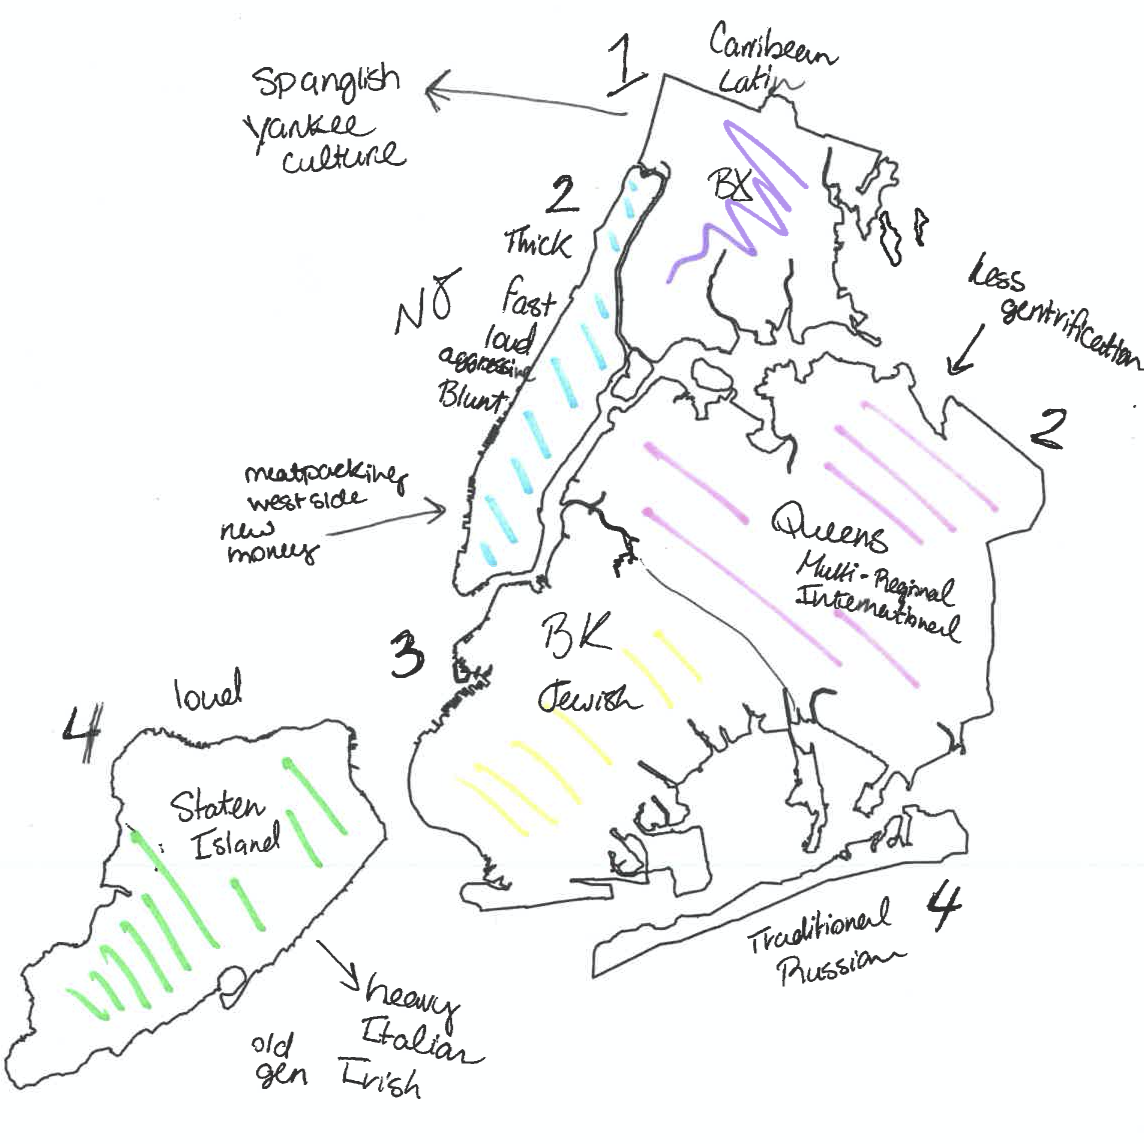 1
Carribean
Latin
Spanglish
Yankee
culture
BX
2
Thick
fast
loud
aggressive
Blunt
Less
gentrification
2
meatpacking
westside
new
money
Queens
Multi-Regional
International
3
BK
Jewish
4
loud
Staten
Island
4
Traditional
Russian
heavy
Italian
Irish
old
gen